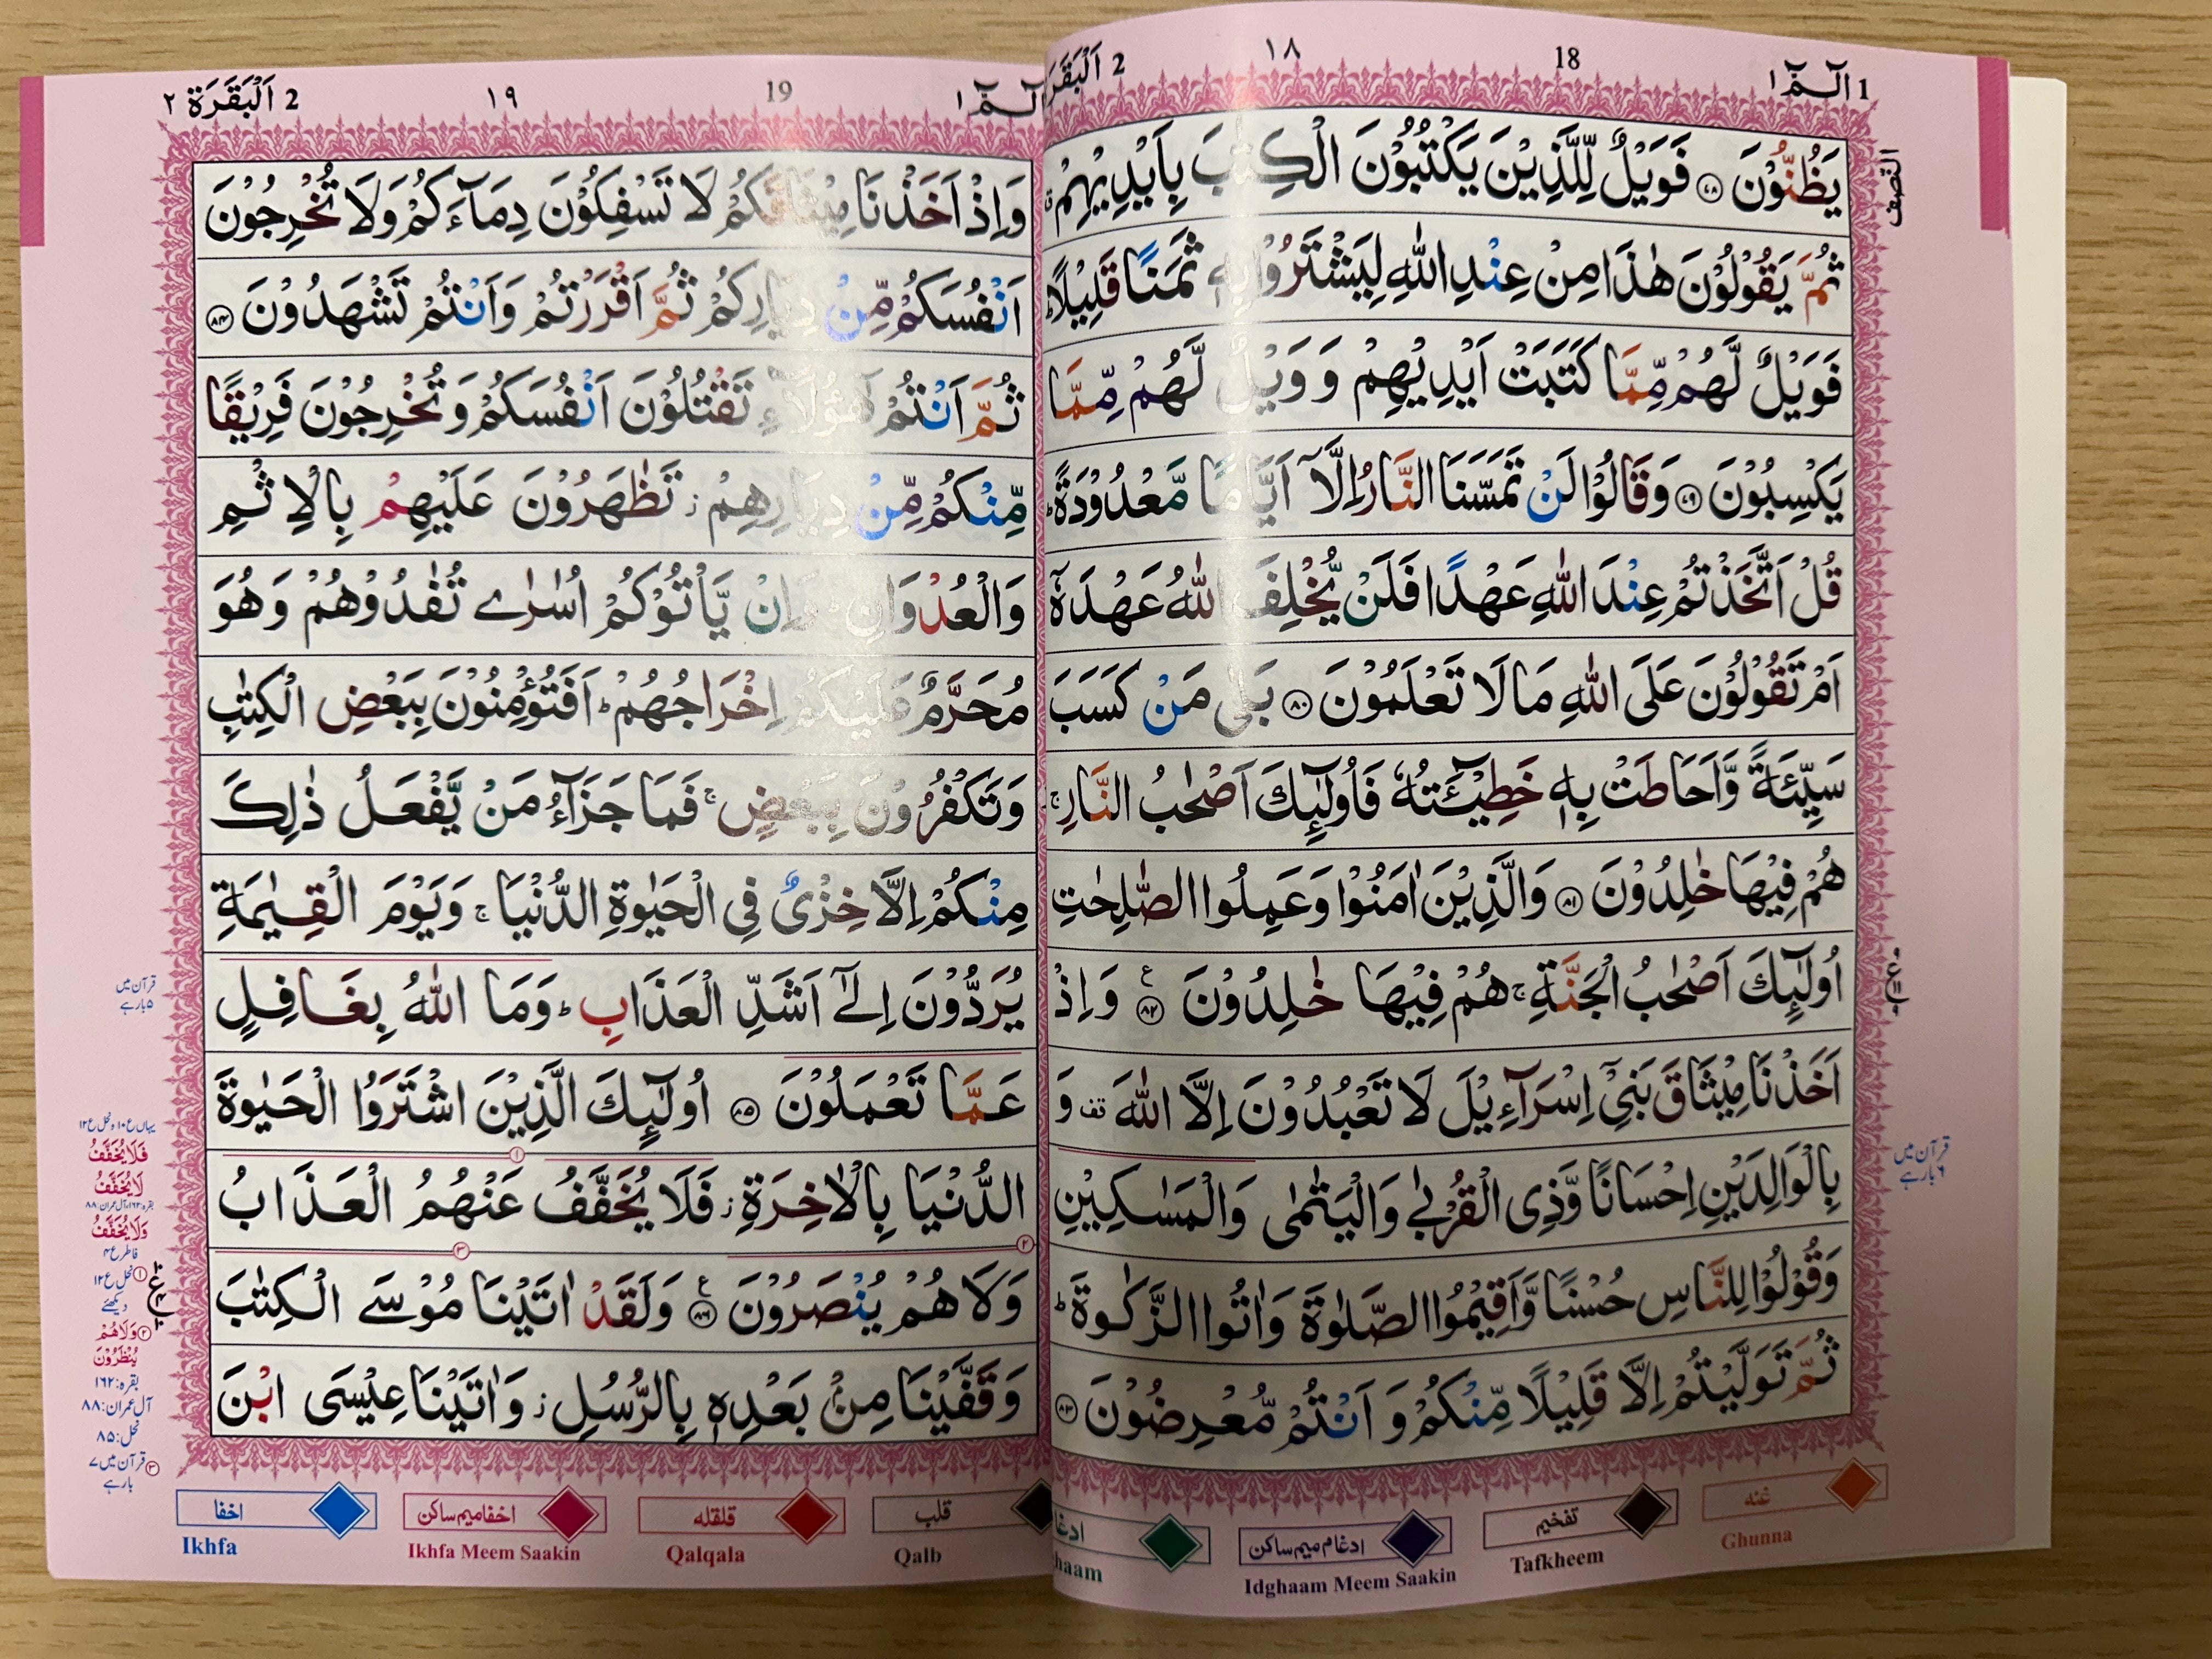 1 الٓـمّٓ ١
18
١٨
2 اَلْبَقَرَ
يَظُنُّوْنَ ۝٧٨ فَوَيْلٌ لِّلَّذِيْنَ يَكْتُبُوْنَ الْكِتٰبَ بِاَيْدِيْهِمْ ۗ
ثُمَّ يَقُوْلُوْنَ هٰذَا مِنْ عِنْدِ اللّٰهِ لِيَشْتَرُوْا بِهٖ ثَمَنًا قَلِيْلًا ؕ
فَوَيْلٌ لَّهُمْ مِّمَّا كَتَبَتْ اَيْدِيْهِمْ وَ وَيْلٌ لَّهُمْ مِّمَّا
يَكْسِبُوْنَ ۝٧٩ وَقَالُوْا لَنْ تَمَسَّنَا النَّارُ اِلَّاۤ اَيَّامًا مَّعْدُوْدَةً ؕ
قُلْ اَتَّخَذْتُمْ عِنْدَ اللّٰهِ عَهْدًا فَلَنْ يُّخْلِفَ اللّٰهُ عَهْدَهٗۤ
اَمْ تَقُوْلُوْنَ عَلَى اللّٰهِ مَا لَا تَعْلَمُوْنَ ۝٨٠ بَلٰى مَنْ كَسَبَ
سَيِّئَةً وَّاَحَاطَتْ بِهٖ خَطِيْٓـَٔتُهٗ فَاُولٰٓئِكَ اَصْحٰبُ النَّارِ ۚ
هُمْ فِيْهَا خٰلِدُوْنَ ۝٨١ وَالَّذِيْنَ اٰمَنُوْا وَعَمِلُوا الصّٰلِحٰتِ
اُولٰٓئِكَ اَصْحٰبُ الْجَنَّةِ ۚ هُمْ فِيْهَا خٰلِدُوْنَ ۝٨٢ ع وَاِذْ
اَخَذْنَا مِيْثَاقَ بَنِيْۤ اِسْرَآءِيْلَ لَا تَعْبُدُوْنَ اِلَّا اللّٰهَ قف وَ
بِالْوَالِدَيْنِ اِحْسَانًا وَّذِى الْقُرْبٰى وَالْيَتٰمٰى وَالْمَسٰكِيْنِ
وَقُوْلُوْا لِلنَّاسِ حُسْنًا وَّاَقِيْمُوا الصَّلٰوةَ وَاٰتُوا الزَّكٰوةَ ؕ
ثُمَّ تَوَلَّيْتُمْ اِلَّا قَلِيْلًا مِّنْكُمْ وَ اَنْتُمْ مُّعْرِضُوْنَ ۝٨٣
النّصف
قرآن میں
۶ بار ہے
غنه
Ghunna
تفخیم
Tafkheem
ادغام میم ساکن
Idghaam Meem Saakin
ادغا
haam
الٓـمّٓ ١
19
١٩
2 اَلْبَقَرَة ٢
وَاِذْ اَخَذْنَا مِيْثَاقَكُمْ لَا تَسْفِكُوْنَ دِمَآءَكُمْ وَلَا تُخْرِجُوْنَ
اَنْفُسَكُمْ مِّنْ دِيَارِكُمْ ثُمَّ اَقْرَرْتُمْ وَاَنْتُمْ تَشْهَدُوْنَ ۝٨٤
ثُمَّ اَنْتُمْ هٰٓؤُلَآءِ تَقْتُلُوْنَ اَنْفُسَكُمْ وَ تُخْرِجُوْنَ فَرِيْقًا
مِّنْكُمْ مِّنْ دِيَارِهِمْ ز تَظٰهَرُوْنَ عَلَيْهِمْ بِالْاِثْمِ
وَالْعُدْوَانِ ؕ وَاِنْ يَّاْتُوْكُمْ اُسٰرٰى تُفٰدُوْهُمْ وَهُوَ
مُحَرَّمٌ عَلَيْكُمْ اِخْرَاجُهُمْ ؕ اَفَتُؤْمِنُوْنَ بِبَعْضِ الْكِتٰبِ
وَتَكْفُرُوْنَ بِبَعْضٍ ۚ فَمَا جَزَآءُ مَنْ يَّفْعَلُ ذٰلِكَ
مِنْكُمْ اِلَّا خِزْىٌ فِى الْحَيٰوةِ الدُّنْيَا ۚ وَيَوْمَ الْقِيٰمَةِ
يُرَدُّوْنَ اِلٰٓى اَشَدِّ الْعَذَابِ ؕ وَمَا اللّٰهُ بِغَافِلٍ
عَمَّا تَعْمَلُوْنَ ۝٨٥ اُولٰٓئِكَ الَّذِيْنَ اشْتَرَوُا الْحَيٰوةَ
الدُّنْيَا بِالْاٰخِرَةِ ز فَلَا يُخَفَّفُ عَنْهُمُ الْعَذَابُ
وَلَا هُمْ يُنْصَرُوْنَ ۝٨٦ ع وَلَقَدْ اٰتَيْنَا مُوْسَى الْكِتٰبَ
وَقَفَّيْنَا مِنْۢ بَعْدِهٖ بِالرُّسُلِ ز وَاٰتَيْنَا عِيْسَى ابْنَ
قرآن میں
۵ بار ہے
یہاں ع ۱۰ و نحل ع ۱۲
فَلَا يُخَفَّفُ
لَا يُخَفَّفُ
بقرہ:۱۶۲، آل عمران:۸۸
وَلَا يُخَفَّفُ
فاطر ع ۴
① نحل ع ۱۲
دیکھئے
② وَلَا هُمْ
يُنْظَرُوْنَ
بقرہ:۱۶۲
آل عمران:۸۸
نحل:۸۵
③ قرآن میں ۷
بار ہے
قلب
Qalb
قلقله
Qalqala
اخفا میم ساکن
Ikhfa Meem Saakin
اخفا
Ikhfa